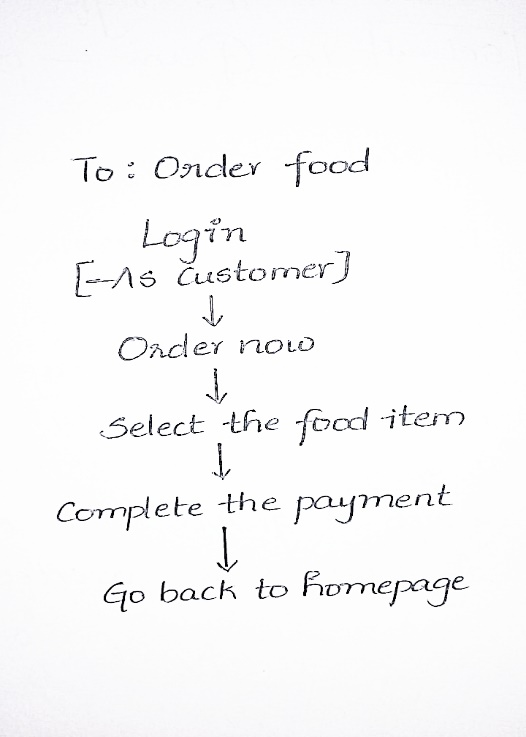 To: Order food
Login
[-As customer]
↓
Order now
↓
Select the food item
↓
Complete the payment
↓
Go back to homepage